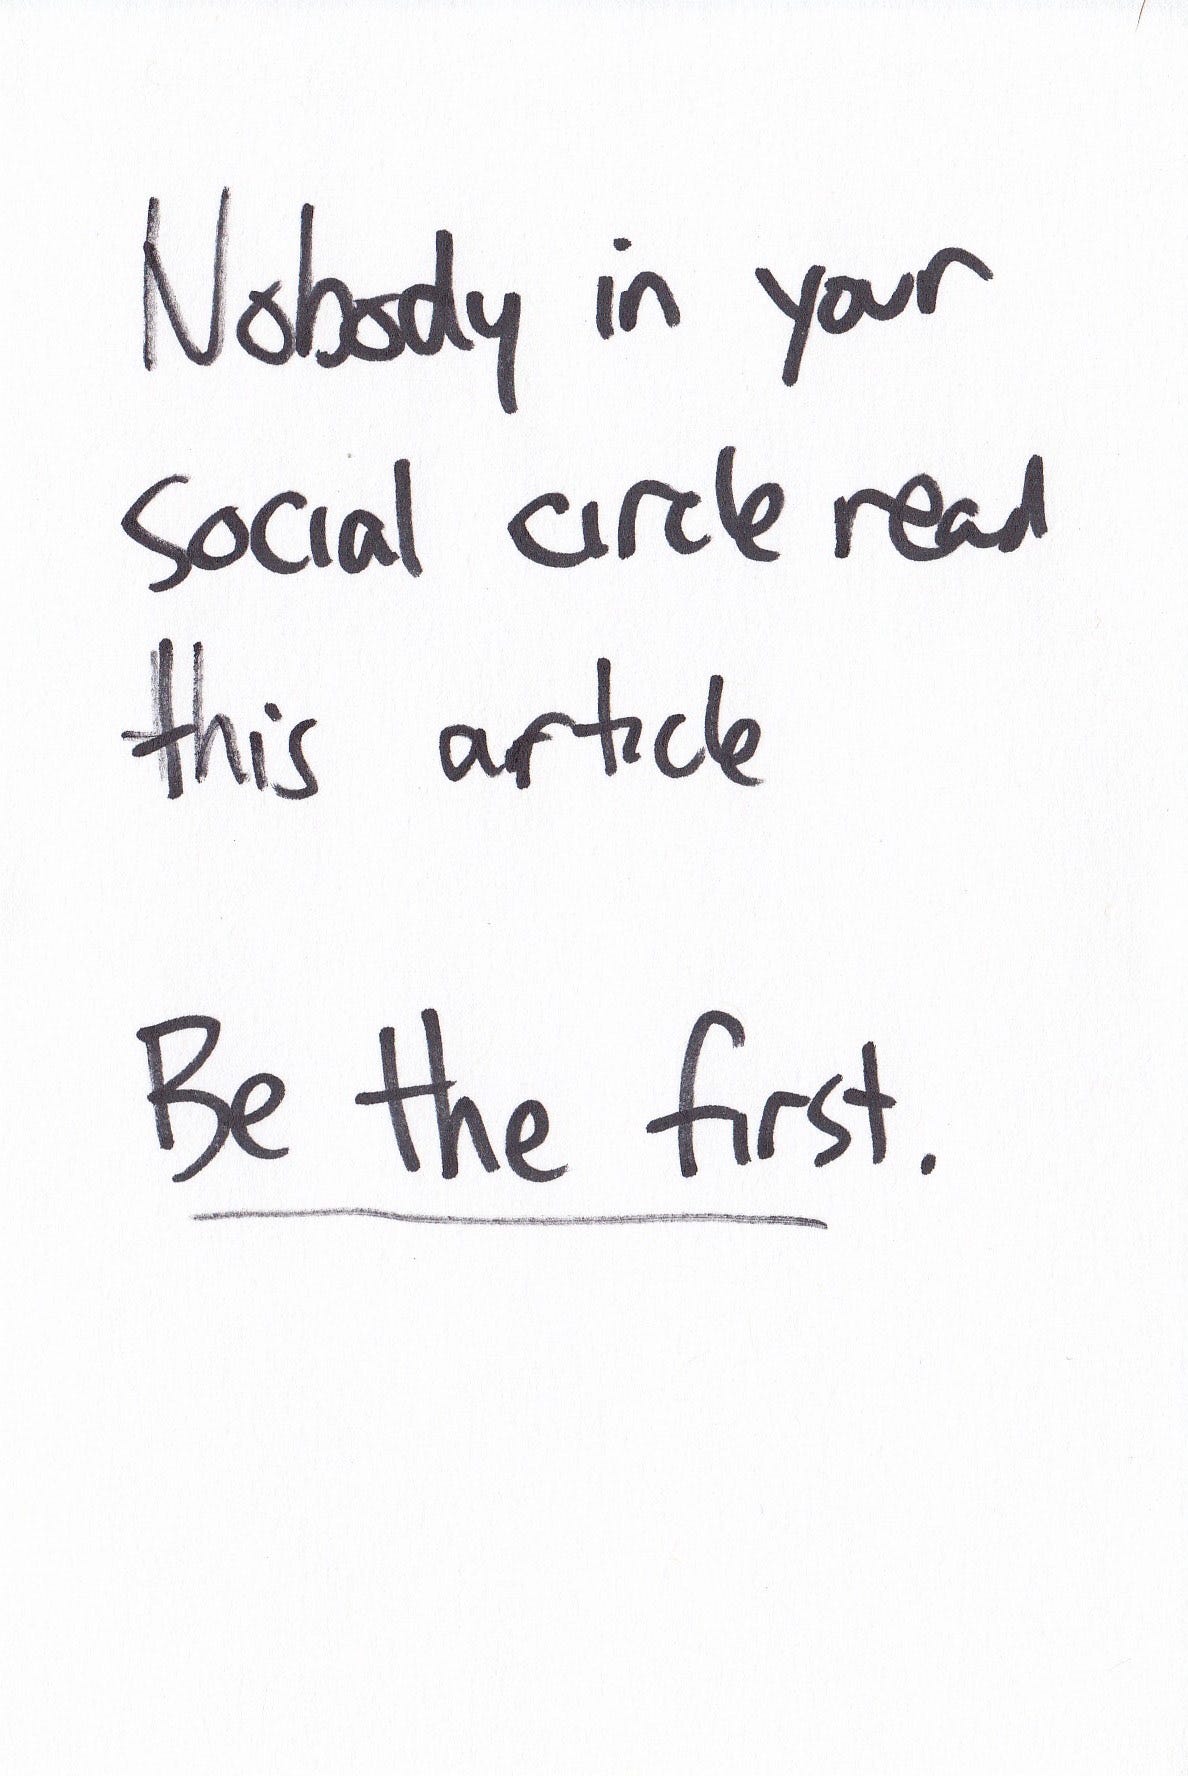 Nobody in your
social circle read
this article
Be the first.